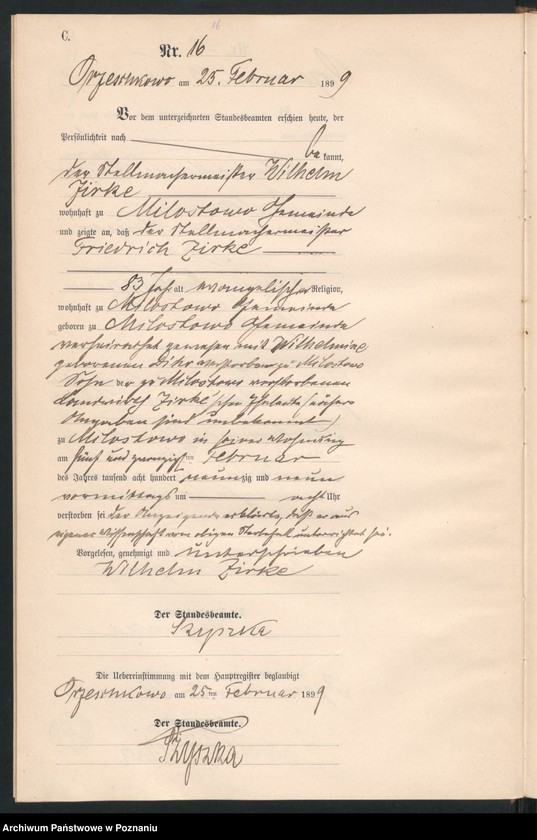 16
C.
Nr. 16
Orzeschkowo am 25. Februar 1899
Vor dem unterzeichneten Standesbeamten erschien heute, der
Persönlichkeit nach
bekannt,
der Stellmachermeister Wilhelm
Zirke
wohnhaft zu Milostowo Gemeinde
und zeigte an, daß der Stellmachermeister
Friedrich Zirke
83 Jahr alt evangelischer Religion,
wohnhaft zu Milostowo Gemeinde
geboren zu Milostowo Gemeinde
verheirathet gewesen mit Wilhelmine
geborenen verstorben zu Milostowo
Sohn der zu Milostowo verstorbenen
Zirke'schen Eheleute (nähere
Angaben sind unbekannt)
zu Milostowo in seiner Wohnung
am fünf und zwanzigsten Februar
des Jahres tausend acht hundert neunzig und neun
vormittags um acht Uhr
verstorben sei. der Anzeigende erklärte, daß er aus
eigener Wissenschaft von obigen Sterbefall unterrichtet sei.
Vorgelesen, genehmigt und unterschrieben
Wilhelm Zirke
Der Standesbeamte.
Szyszka
Die Uebereinstimmung mit dem Hauptregister beglaubigt
Orzeschkowo am 25ten Februar 1899
Der Standesbeamte.
Szyszka
Archiwum Państwowe w Poznaniu